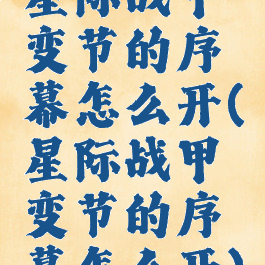 星际战甲
变节的序
幕怎么开(
星际战甲
变节的序
幕怎么开)